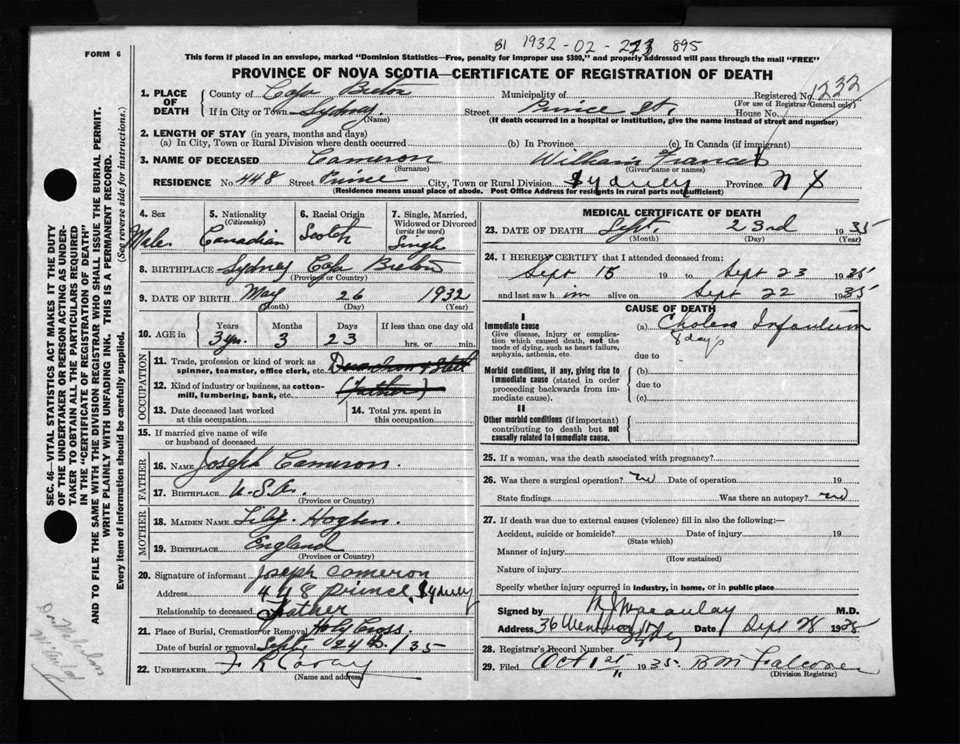 FORM 6
B1 1932-02-273 895
This form if placed in an envelope, marked "Dominion Statistics—Free, penalty for improper use $300," and properly addressed will pass through the mail "FREE"
PROVINCE OF NOVA SCOTIA—CERTIFICATE OF REGISTRATION OF DEATH
1. PLACE OF DEATH County of Cape Breton Municipality of Registered No. 1232
(For use of Registrar General only)
If in City or Town Sydney (Name) Street Prince St. House No.
(If death occurred in a hospital or institution, give the name instead of street and number)
2. LENGTH OF STAY (in years, months and days)
(a) In City, Town or Rural Division where death occurred (b) In Province (c) In Canada (if immigrant)
3. NAME OF DECEASED Cameron (Surname) William Francis (Given name or names)
RESIDENCE No. 448 Street Prince City, Town or Rural Division Sydney Province N S
(Residence means usual place of abode. Post Office Address for residents in rural parts not sufficient)
4. Sex Male
5. Nationality (Citizenship) Canadian
6. Racial Origin Scotch
7. Single, Married, Widowed or Divorced (write the word) Single
8. BIRTHPLACE Sydney Cape Breton
(Province or Country)
9. DATE OF BIRTH May 26 1932
(Month) (Day) (Year)
10. AGE in Years Months Days If less than one day old
3 yrs. 3 23 hrs. or min.
OCCUPATION
11. Trade, profession or kind of work as spinner, teamster, office clerk, etc.
12. Kind of industry or business, as cotton-mill, lumbering, bank, etc. (Father)
13. Date deceased last worked at this occupation
14. Total yrs. spent in this occupation
15. If married give name of wife or husband of deceased
FATHER
16. NAME Joseph Cameron.
17. BIRTHPLACE U.S.A.
(Province or Country)
MOTHER
18. MAIDEN NAME
19. BIRTHPLACE England
(Province or Country)
20. Signature of informant Joseph Cameron
Address 448 Prince, Sydney
Relationship to deceased Father
21. Place of Burial, Cremation or Removal Holy Cross
Date of burial or removal Sept 24th /35
22. UNDERTAKER
(Name and address)
MEDICAL CERTIFICATE OF DEATH
23. DATE OF DEATH Sept. 23rd 1935
(Month) (Day) (Year)
24. I HEREBY CERTIFY that I attended deceased from:
Sept 15 19 to Sept 23 1935
and last saw him alive on Sept 22 1935
CAUSE OF DEATH
I
Immediate cause (a) Cholera Infantum
8 days
Give disease, injury or complication which caused death, not the mode of dying, such as heart failure, asphyxia, asthenia, etc.
due to
Morbid conditions, if any, giving rise to immediate cause (stated in order proceeding backwards from immediate cause).
(b)
due to
(c)
II
Other morbid conditions (if important) contributing to death but not causally related to immediate cause.
25. If a woman, was the death associated with pregnancy?
26. Was there a surgical operation? no Date of operation 19
State findings Was there an autopsy? no
27. If death was due to external causes (violence) fill in also the following:—
Accident, suicide or homicide? Date of injury 19
(State which)
Manner of injury
(How sustained)
Nature of injury
Specify whether injury occurred in industry, in home, or in public place
Signed by M J Macaulay M.D.
Address 36 Date Sept 28 1935
28. Registrar's Record Number
29. Filed Oct 1st 1935
(Division Registrar)
SEC. 46—VITAL STATISTICS ACT MAKES IT THE DUTY OF THE UNDERTAKER OR PERSON ACTING AS UNDERTAKER TO OBTAIN ALL THE PARTICULARS REQUIRED IN THE "CERTIFICATE OF REGISTRATION OF DEATH" AND TO FILE THE SAME WITH THE DIVISION REGISTRAR WHO SHALL ISSUE THE BURIAL PERMIT.
WRITE PLAINLY WITH UNFADING INK. THIS IS A PERMANENT RECORD.
Every item of information should be carefully supplied. (See reverse side for instructions.)